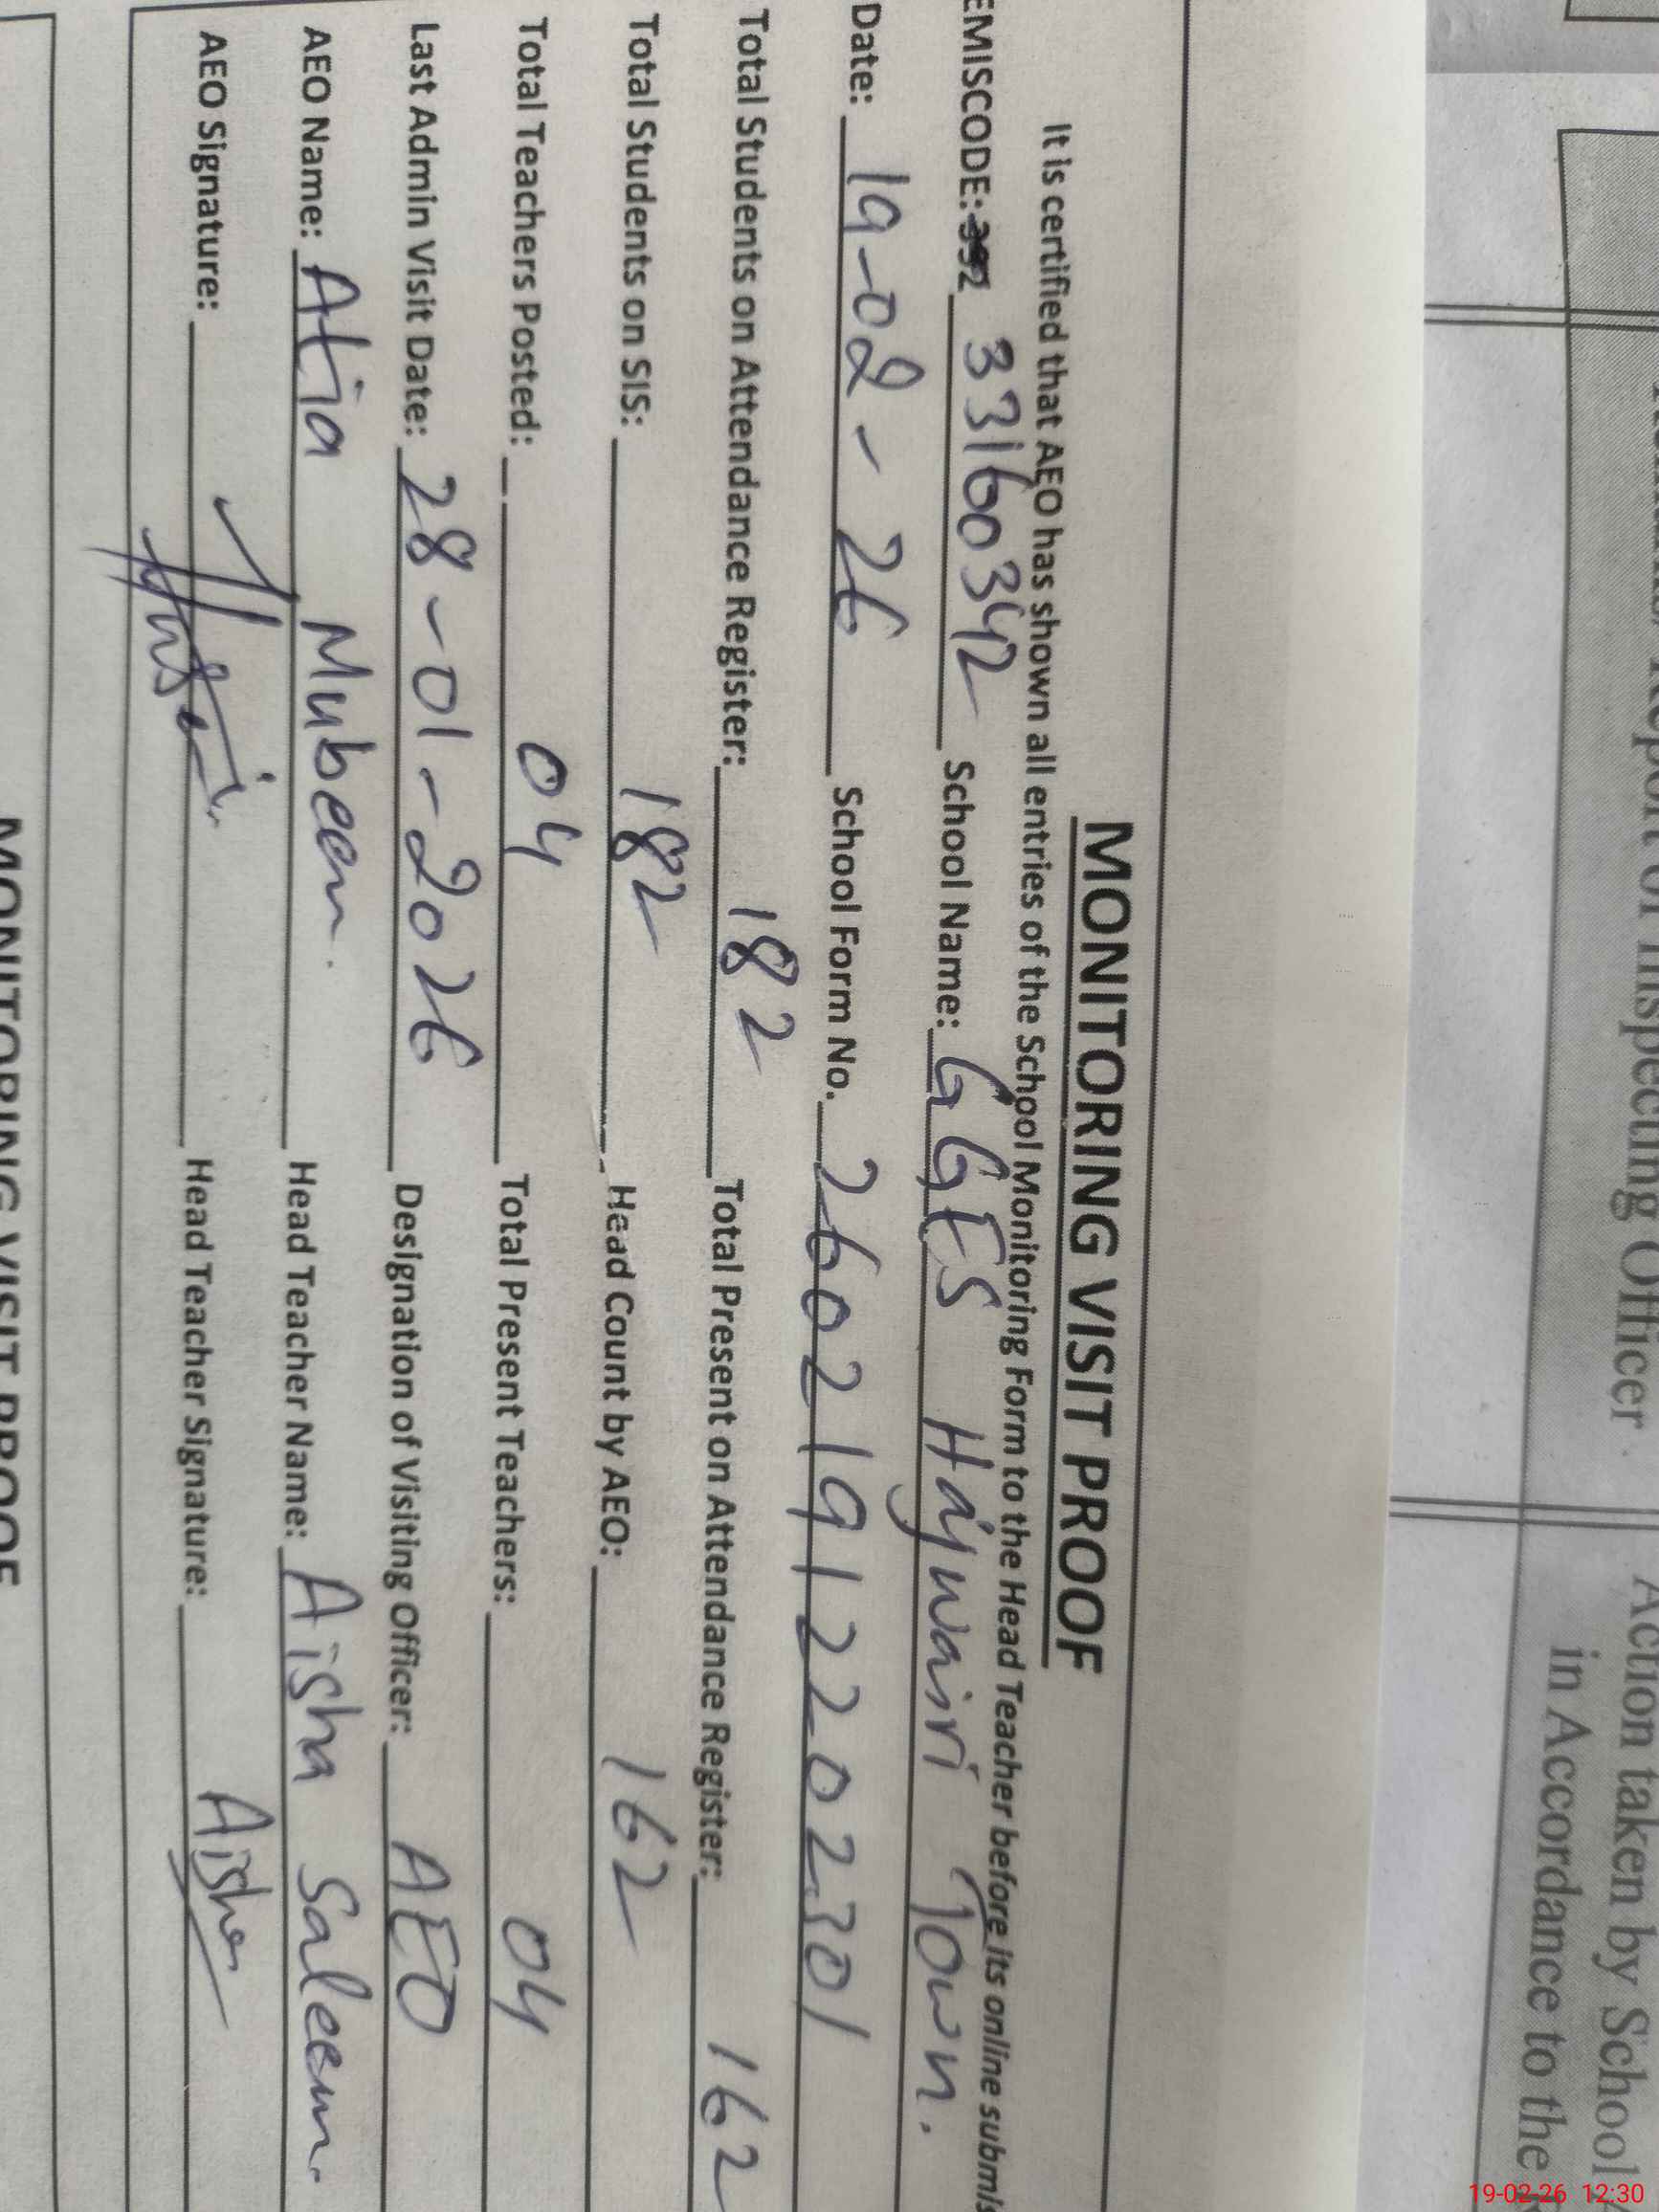 Report of Inspecting Officer.
Action taken by School
in Accordance to the
MONITORING VISIT PROOF
It is certified that AEO has shown all entries of the School Monitoring Form to the Head Teacher before its online submis
EMISCODE: 33160342 School Name: GGES Hajwairi Town.
Date: 19-02-26 School Form No. 26021912202301
Total Students on Attendance Register: 182 Total Present on Attendance Register: 162
Total Students on SIS: 182 Head Count by AEO: 162
Total Teachers Posted: 04 Total Present Teachers: 04
Last Admin Visit Date: 28-01-2026 Designation of Visiting Officer: AEO
AEO Name: Atia Mubeen. Head Teacher Name: Aisha Saleem.
AEO Signature: Head Teacher Signature: Aisha
MONITORING VISIT PROOF
19-02-26 12:30